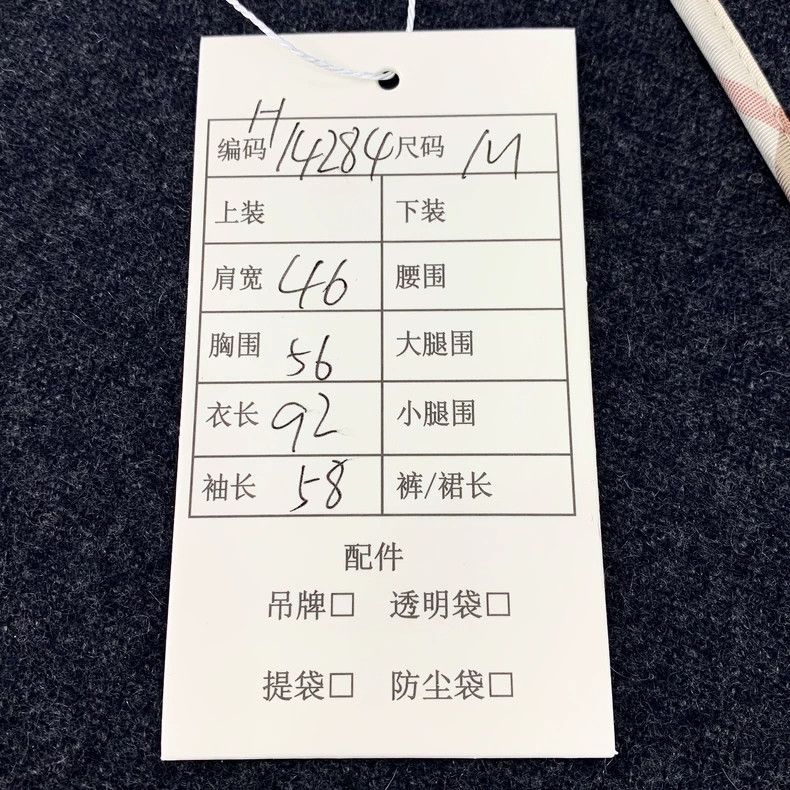 编码 H14284 尺码 M
上装 下装
肩宽 46 腰围
胸围 56 大腿围
衣长 92 小腿围
袖长 58 裤/裙长
配件
吊牌□ 透明袋□
提袋□ 防尘袋□